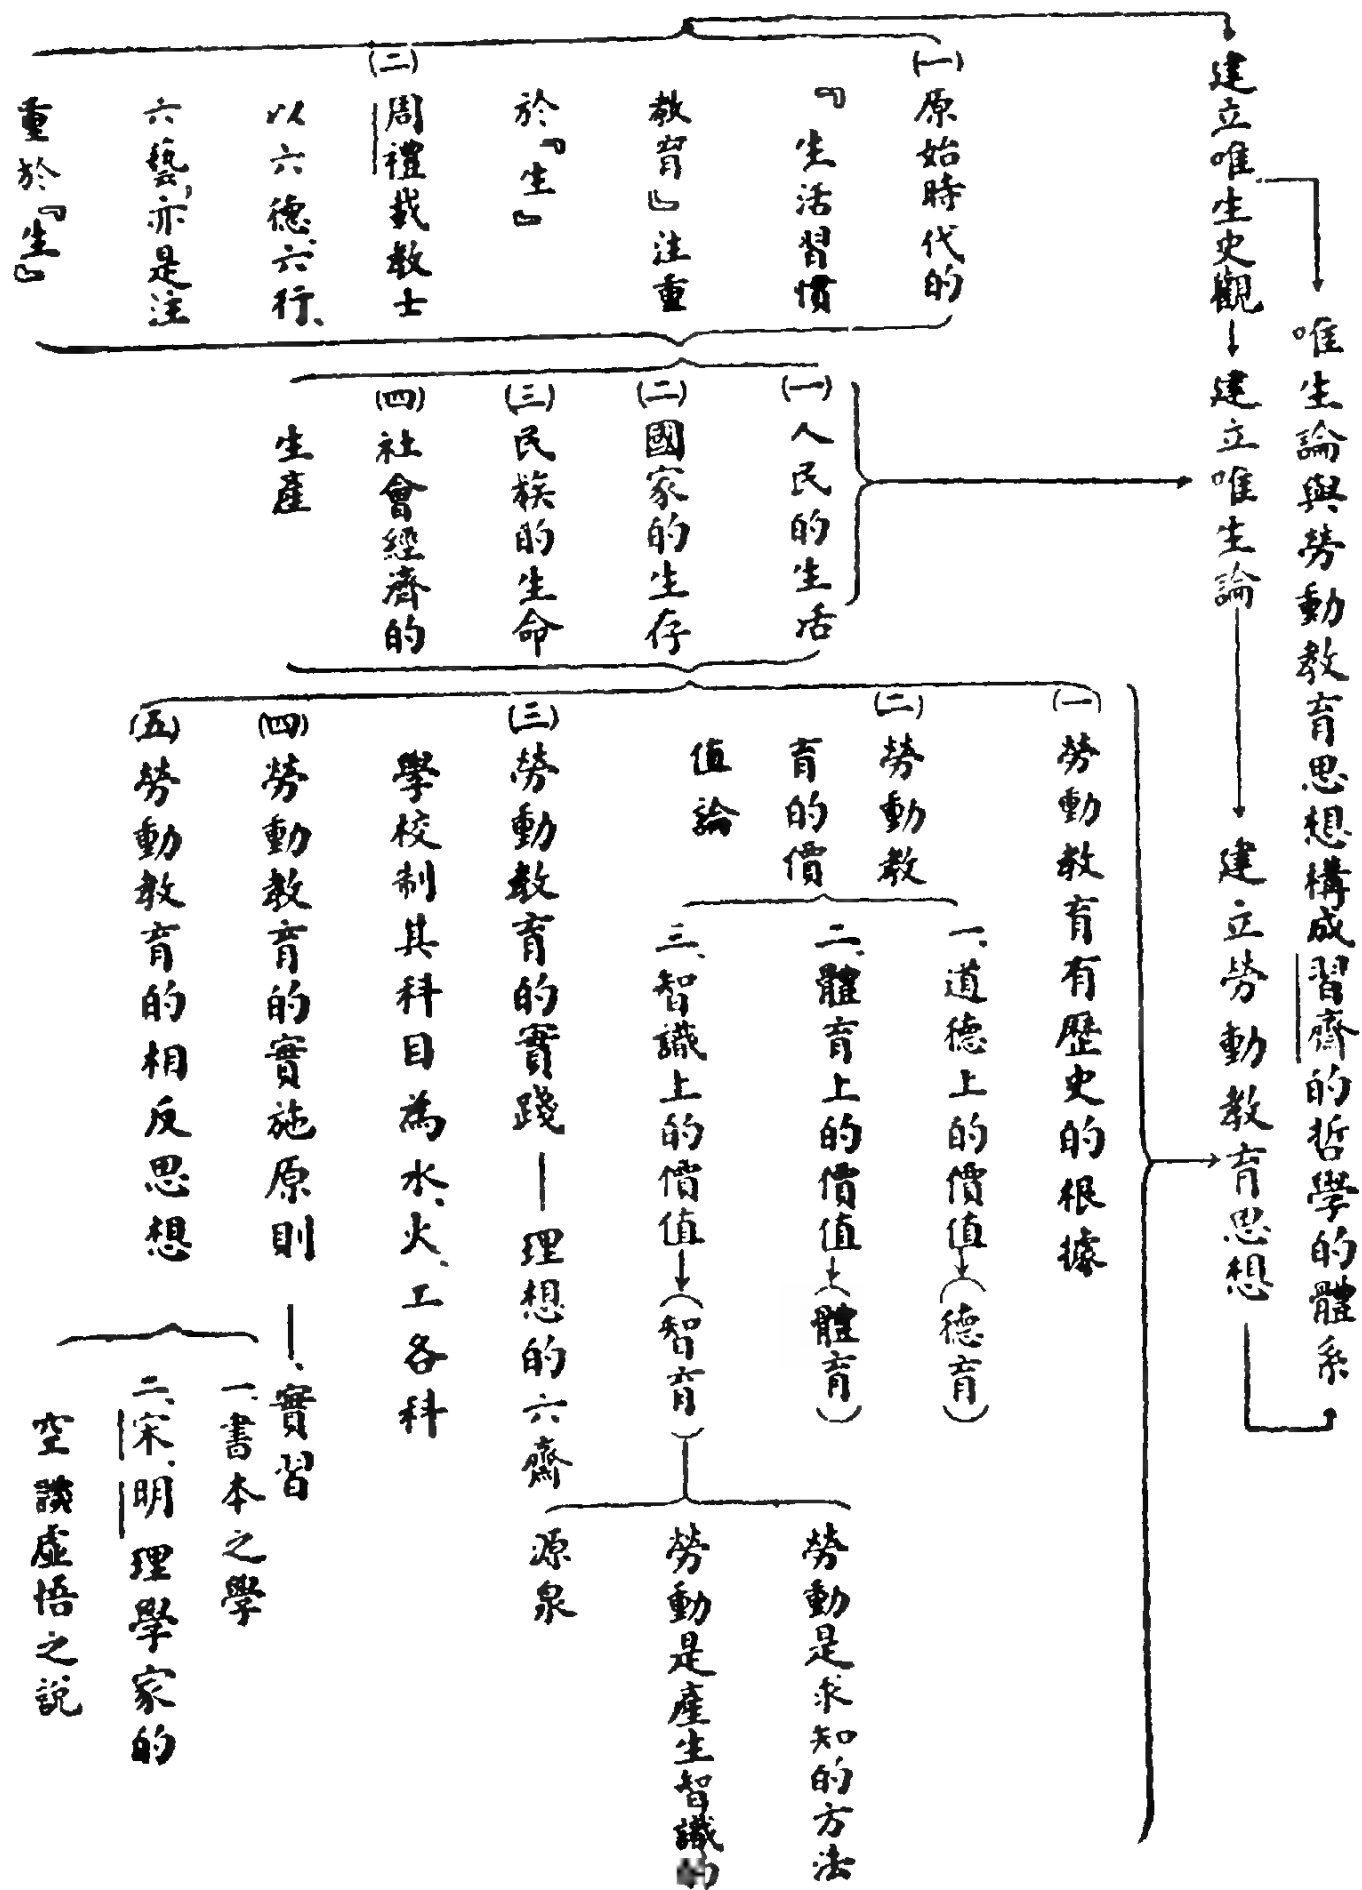 唯生論與勞動教育思想構成習齋的哲學的體系
建立唯生史觀
建立唯生論
建立勞動教育思想
(一)原始時代的
『生活習慣
教育』注重
於『生』
(二)周禮載教士
以六德、六行、
六藝,亦是注
重於『生』
(一)人民的生活
(二)國家的生存
(三)民族的生命
(四)社會經濟的
生產
(一)勞動教育有歷史的根據
(二)勞動教
育的價
值論
一、道德上的價值
(德育)
二、體育上的價值
(體育)
三、智識上的價值
(智育)
勞動是求知的方法
勞動是產生智識的
源泉
(三)勞動教育的實踐—理想的六齋
學校制其科目為水、火、工各科
(四)勞動教育的實施原則—、實習
(五)勞動教育的相反思想
一、書本之學
二、宋、明理學家的
空談虛悟之說